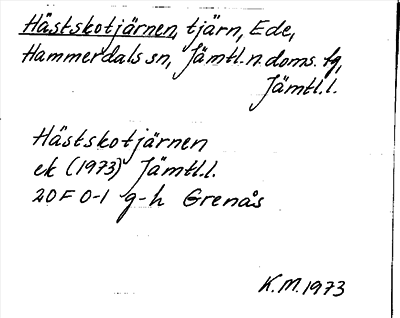 Hästskotjärnen, tjärn, Ede,
Hammerdals sn, Jämtl. n. doms. fg,
Jämtl.l.
Hästskotjärnen
ek (1973) Jämtl.l.
20F 0-1 g-h Grenås
K.M. 1973